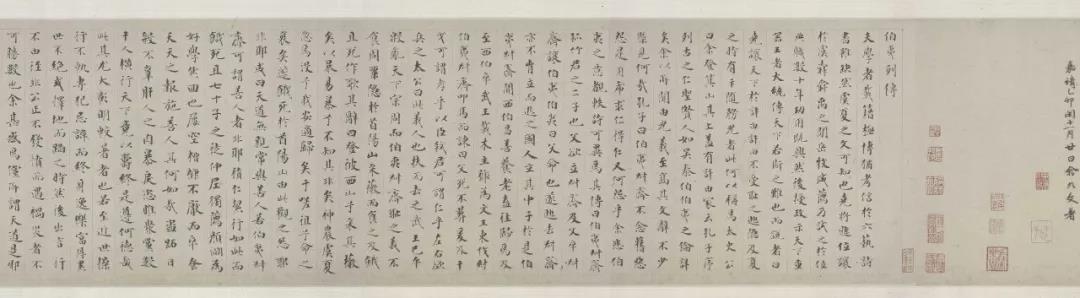 嘉靖乙卯閏十一月廿日
伯夷列傳
夫學者載籍極博猶考信於六藝詩
書雖缺然虞夏之文可知也堯將遜位讓
於虞舜舜禹之間岳牧咸薦乃試之於位
典職數十年功用既興然後授政示天下重
器王者大統傳天下若斯之難也而說者曰
堯讓天下於許由許由不受恥之逃隱及夏
之時有卞隨務光者此何以稱焉太史公
曰余登箕山其上蓋有許由冢云孔子序
列古之仁聖賢人如吳泰伯伯夷之倫詳
矣余以所聞由光義至高其文辭不少
概見何哉孔子曰伯夷叔齊不念舊惡
怨是用希求仁得仁又何怨乎余悲伯
夷之意睹軼詩可異焉其傳曰伯夷叔齊
孤竹君之二子也父欲立叔齊及父卒叔
齊讓伯夷伯夷曰父命也遂逃去叔齊
亦不肯立而逃之國人立其中子於是伯
夷叔齊聞西伯昌善養老盍往歸焉及
至西伯卒武王載木主號為文王東伐紂
伯夷叔齊叩馬而諫曰父死不葬爰及干
戈可謂孝乎以臣弒君可謂仁乎左右欲
兵之太公曰此義人也扶而去之武王已平
殷亂天下宗周而伯夷叔齊恥之義不
食周粟隱於首陽山采薇而食之及餓
且死作歌其辭曰登彼西山兮采其薇
矣以暴易暴兮不知其非矣神農虞夏
忽焉沒兮我安適歸矣于嗟徂兮命之
衰矣遂餓死於首陽山由此觀之怨耶
非耶或曰天道無親常與善人若伯夷叔
齊可謂善人者非耶積仁絜行如此而
餓死且七十子之徒仲尼獨薦顏淵為
好學然回也屢空糟糠不厭而卒蚤
夭天之報施善人其何如哉盜蹠日
殺不辜肝人之肉暴戾恣睢聚黨數
千人橫行天下竟以壽終是遵何德哉
此其尤大彰明較著者也若至近世操
行不軌專犯忌諱而終身逸樂富厚累
世不絕或擇地而蹈之時然後出言行
不由徑非公正不發憤而遇禍災者不
可勝數也余甚惑焉儻所謂天道是邪